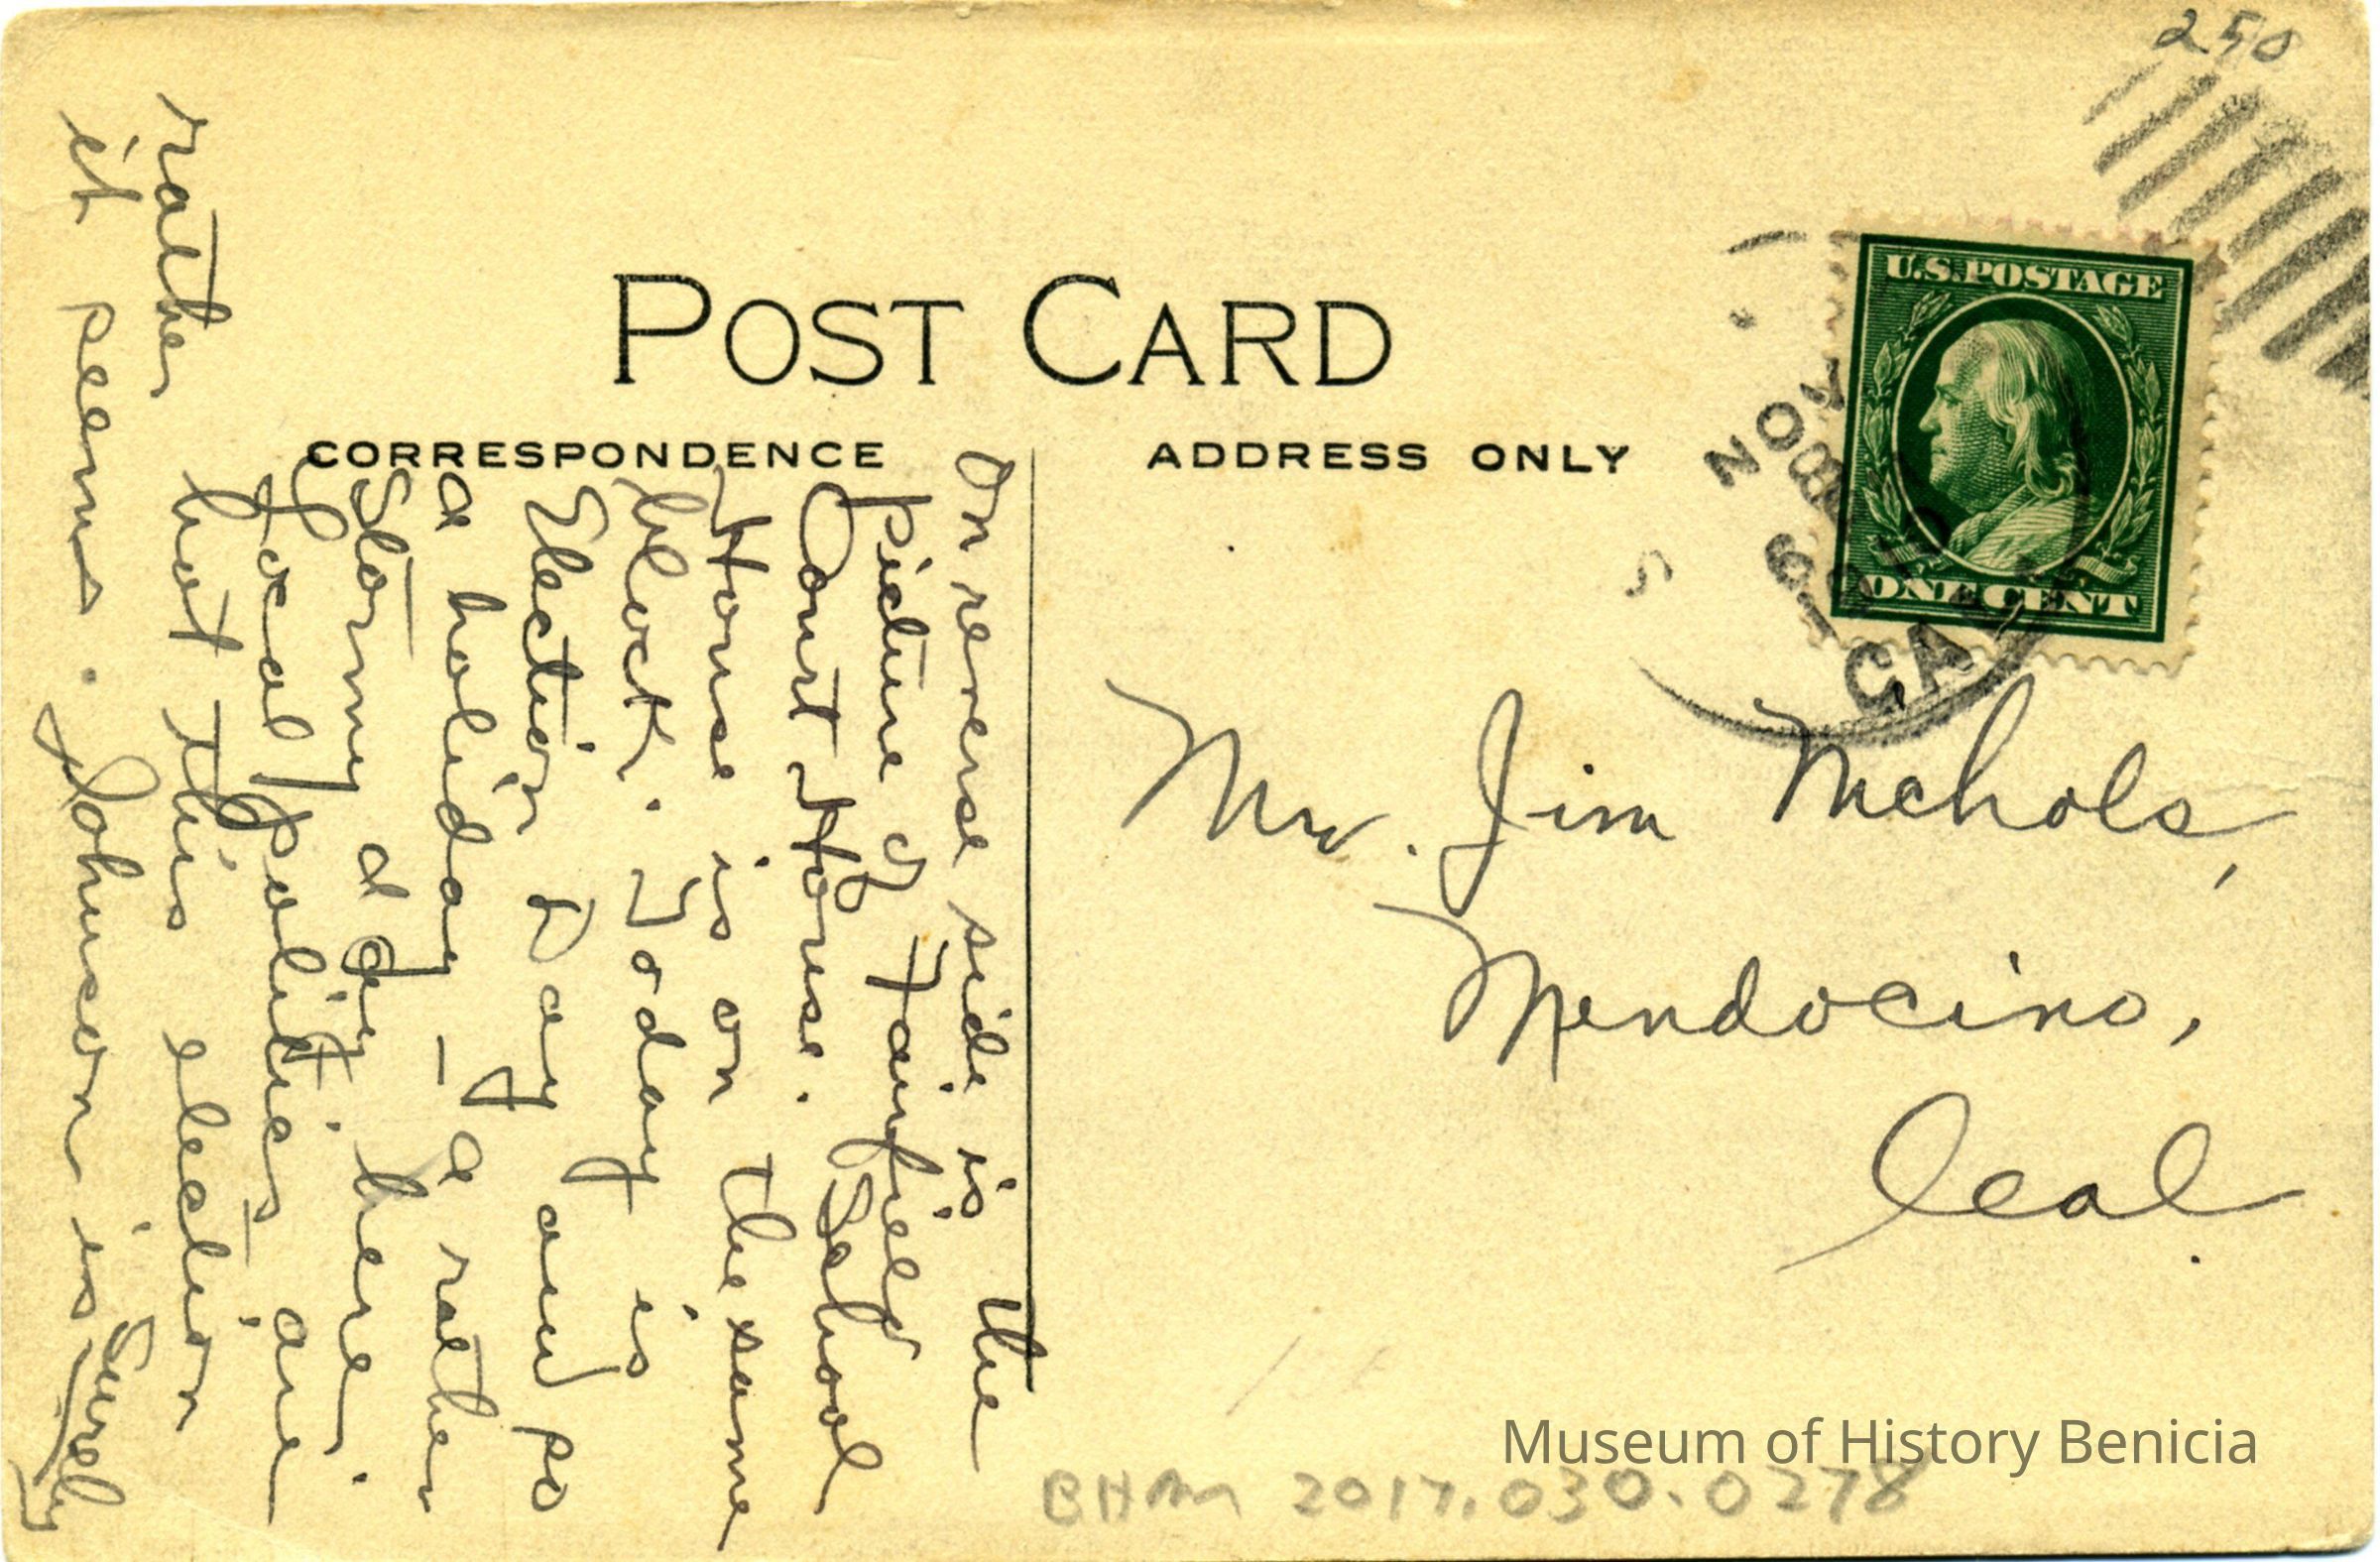 250
POST CARD
CORRESPONDENCE
ADDRESS ONLY
U.S. POSTAGE
ONE CENT
NOV
8
CAL
On reverse side is the
picture of Fairfield
Court House. School
House is on the same
block. Today is
Election Day and so
a holiday - a rather
stormy day here.
Local politics are
rather hot this election
it seems. Johnson is surely
Mr. Jim Nichols,
Mendocino,
Cal.
Museum of History Benicia
BHM 2017.030.0278